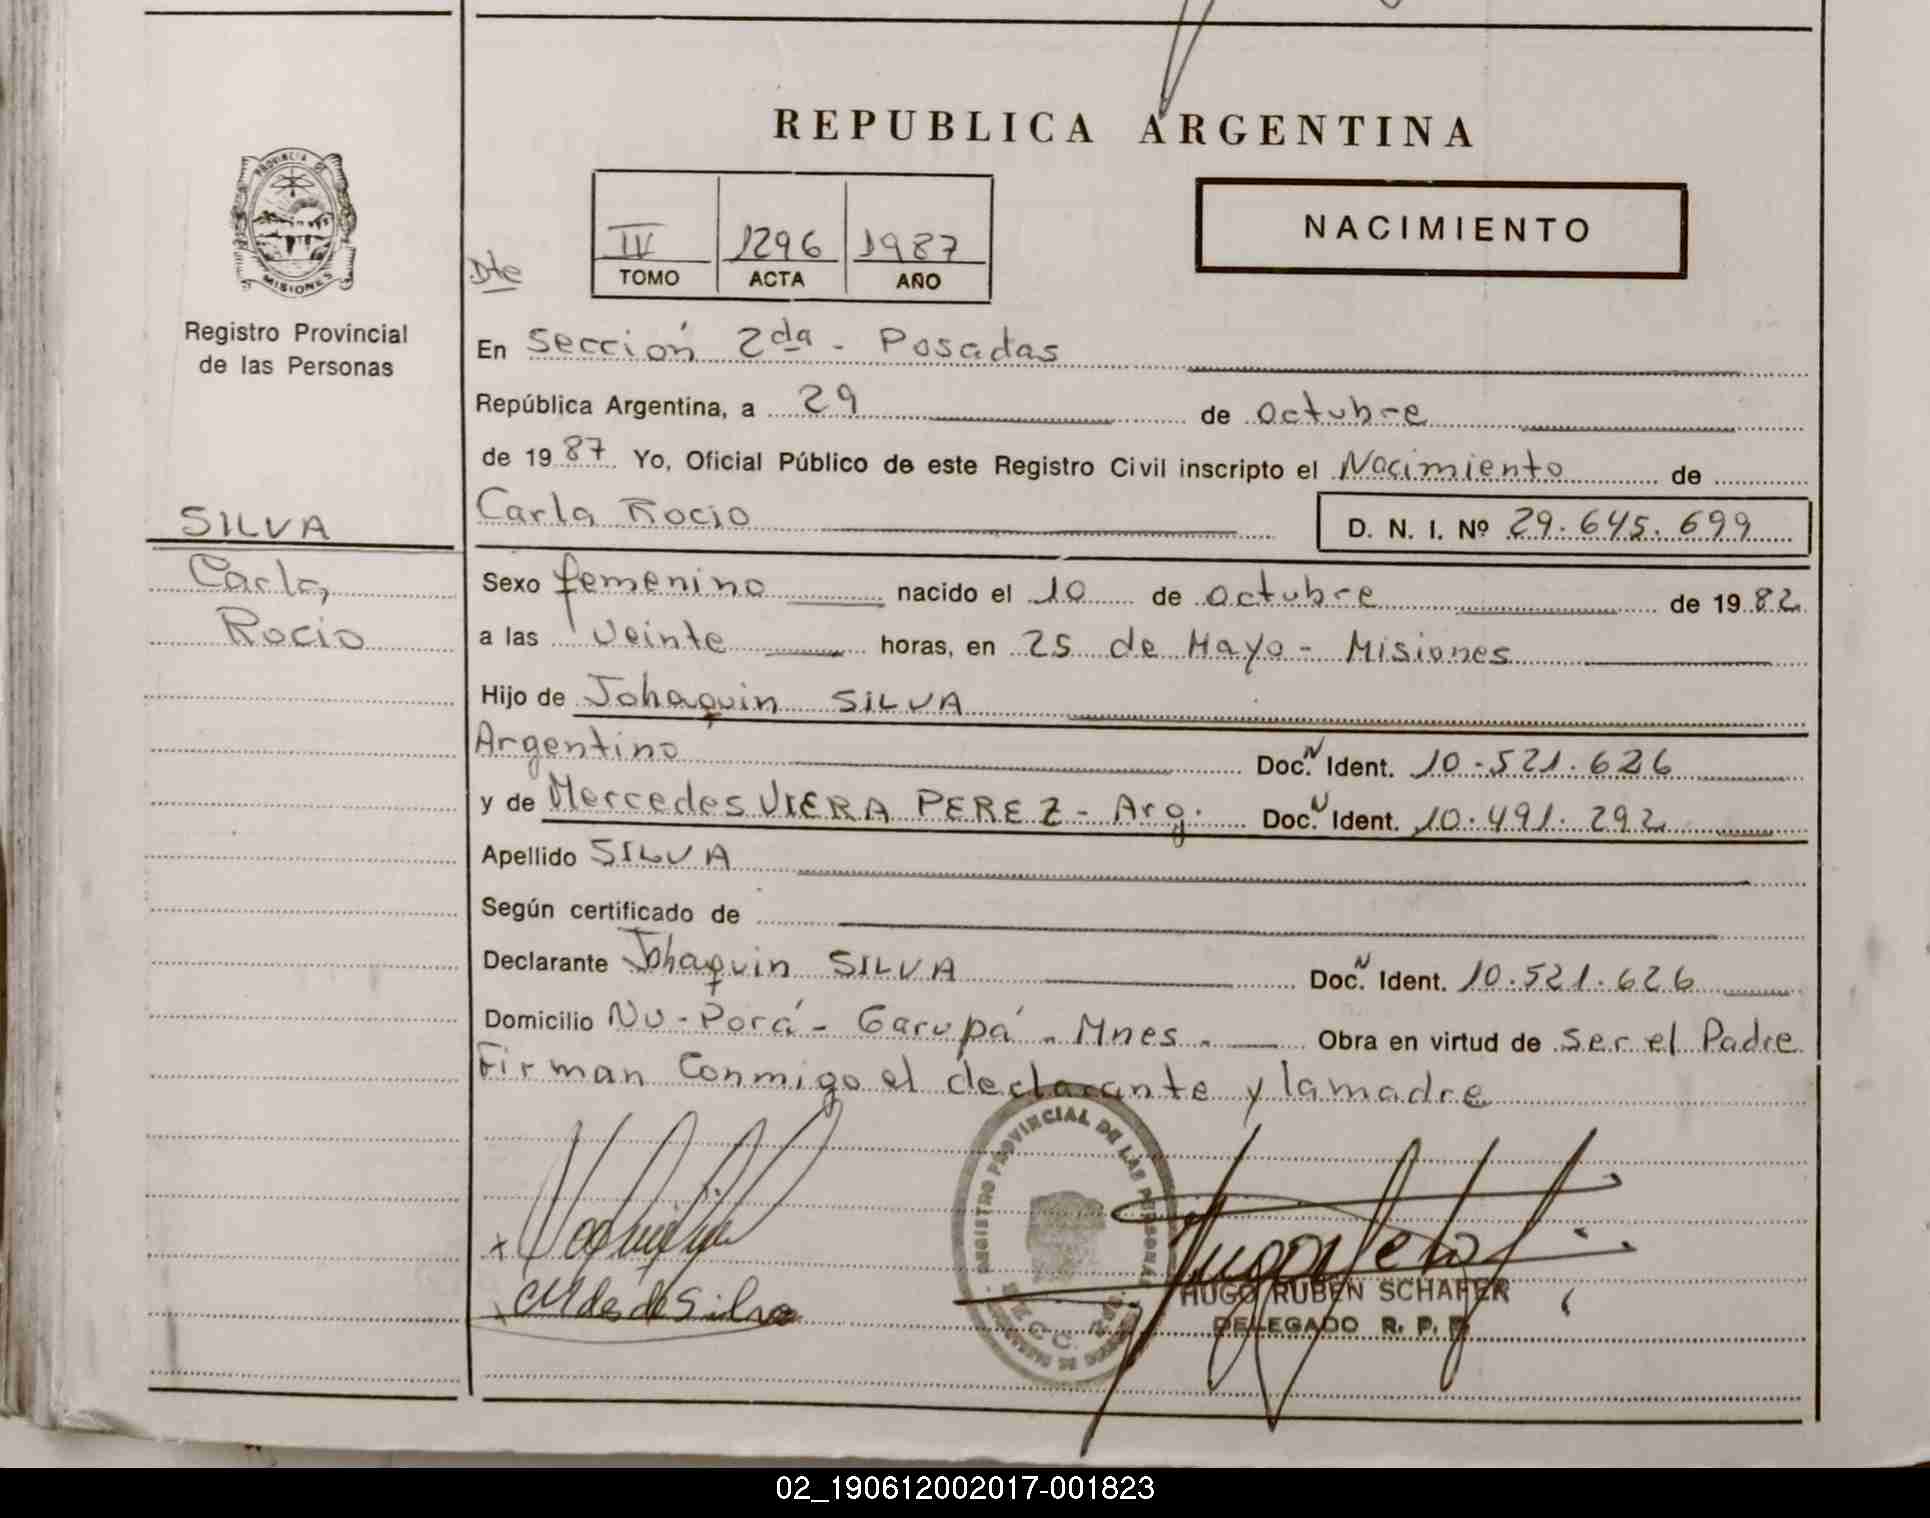 REPUBLICA ARGENTINA
PROVINCIA DE
MISIONES
Registro Provincial
de las Personas
Dte
IV 1296 1987
TOMO ACTA AÑO
NACIMIENTO
En Sección 2da - Posadas
República Argentina, a 29 de octubre
de 19 87 Yo, Oficial Público de este Registro Civil inscripto el Nacimiento de
Carla Rocio D. N. I. Nº 29.645.699
SILVA
Carla,
Rocio
Sexo femenino nacido el 10 de octubre de 19 82
a las veinte horas, en 25 de Mayo - Misiones
Hijo de Johaquin SILVA
Argentino Doc. N Ident. 10.521.626
y de Mercedes VIERA PEREZ - Arg. Doc. N Ident. 10.491.292
Apellido SILVA
Según certificado de
Declarante Johaquin SILVA Doc. N Ident. 10.521.626
Domicilio Ñu-Porá - Garupá - Mnes - Obra en virtud de ser el Padre
Firman Conmigo el declarante y la madre
REGISTRO PROVINCIAL DE LAS PERSONAS
HUGO RUBEN SCHAFER
DELEGADO R. P. P.
02_190612002017-001823